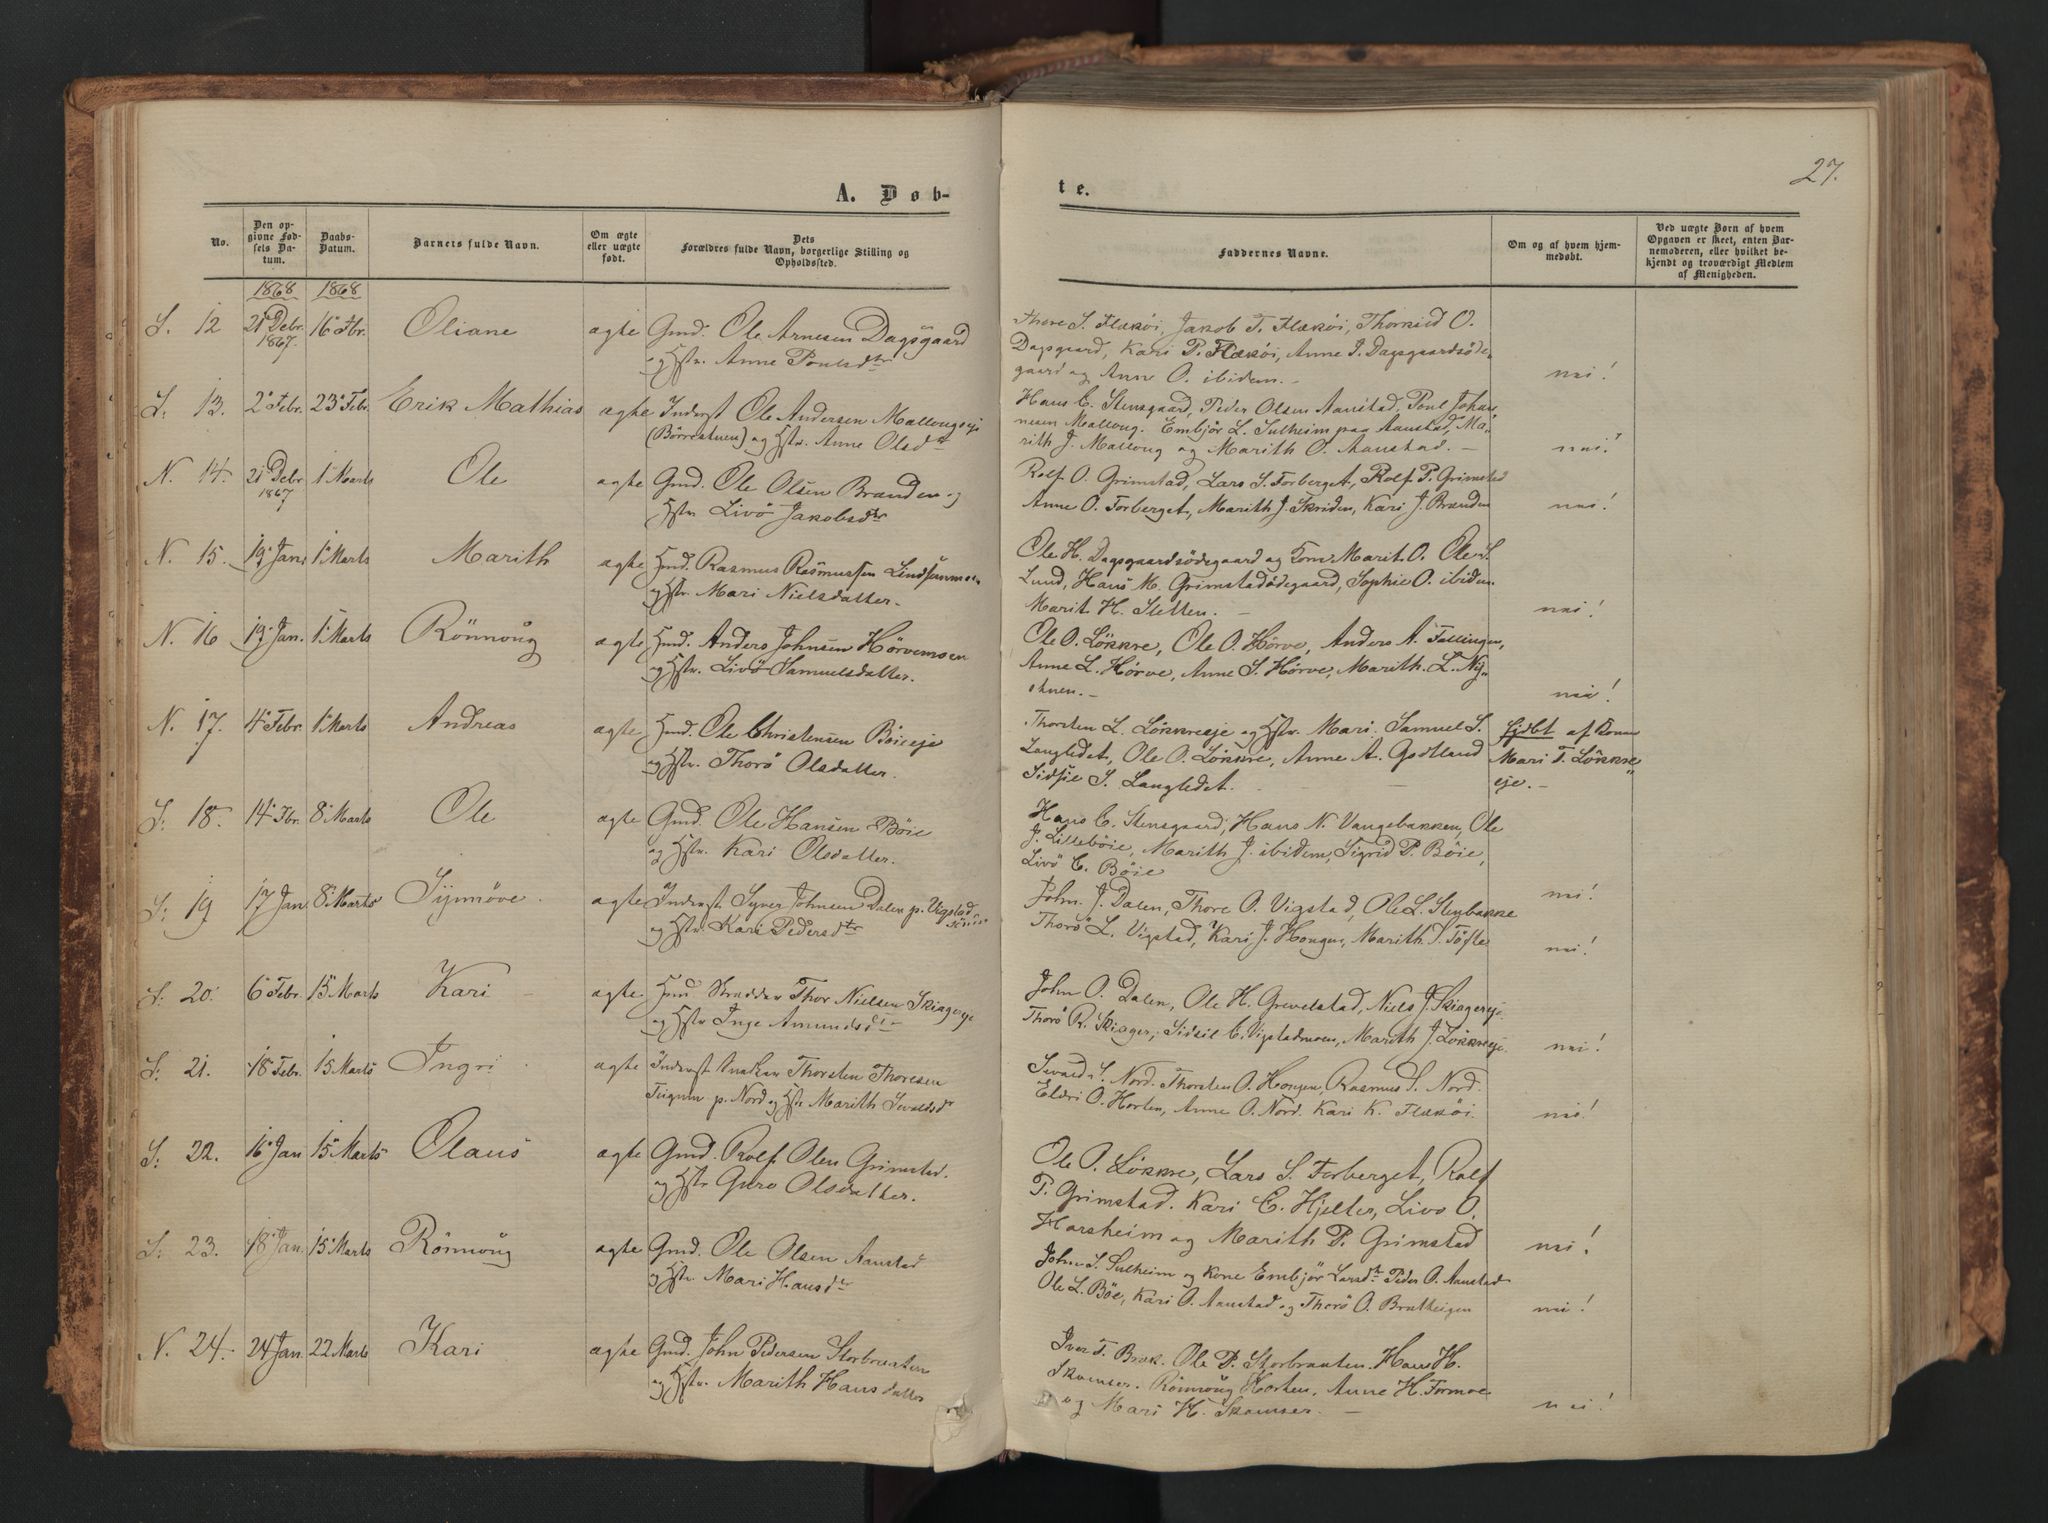 27.
A. Døb-
te.
No.
Den op-
givne Fød-
sels Da-
tum.
Daabs-
Datum.
Barnets fulde Navn.
Om ægte
eller uægte
født.
Dets
Forældres fulde Navn, borgerlige Stilling og
Opholdssted.
Faddernes Navne.
Om og af hvem hjem-
medøbt.
Ved uægte Børn af hvem
Opgaven er skeet, enten Bar-
nemoderen, eller hvilket be-
kjendt og troværdigt Medlem
af Menigheden.
1868 1868
S. 12 21 Debr. 1867. 16 Fbr. Oliane ægte Gmd. Ole Arnesen Dagsgaard
og Hstr. Anne Poulsdtr
Thore S. Flækøi, Jakob T. Flækøi, O.
Dagsgaard, Kari P. Flækøi, Anne J. Dagsgaardsöde-
gaard og Anne O. ibidem.-
nei!
S: 13. 2 Febr. 23 Febr. Erik Mathias ægte Inderst Ole Andersen
og Hstr. Anne Olsdtr
Hans C. Stensgaard, Peder Olsen Aanstad, Poul Johan-
nesen Mallong. Embjör L. Sulheim paa Aanstad, Ma-
rith J. Mallong og Marith O. Aanstad. -
nei!
N. 14. 21 Debr 1867 1 Marts Ole ægte Gmd. Ole Olsen Branden og
Hstr. Livö Jakobsdtr
Rolf O. Grimstad, Lars S. Forberget, Rolf P. Grimsted
Anne O. Forberget, Marith J. Skriden, Kari J. Brænden
nei!
N. 15. 19 Jan. 1 Marts Marith ægte Hmd. Rasmus Rasmussen
og Hstr. Mari Nielsdatter.
Ole H. Dagsgaardsödegaard og Kone Marit O. Ole S.
Lund, Hans M. Grimstadödegaard, Sophie O. ibidem.
Marit H. Sletten. -
nei!
N. 16 19 Jan. 1 Marts Rönnoüg ægte Hmd. Anders Johnsen Hörvemoen
og Hstr. Livö Samuelsdatter.
Ole O. Lökkre, Ole O. Hörve, Anders A. Tallingen,
Anne L. Hörve, Anne S. Hörve, Marith L. Ny-
stuen. -
nei!
N. 17. 4 Febr. 1 Marts Andreas ægte Hmd. Ole Christensen Böieeje
og Hstr. Thorö Olsdatter.
Thorsten L. Lökkreeje og Hstr. Mari. Samuel S.
Langledet, Ole O. Lökkre, Anne A. Gjötland
Sidsie S. Langledet.
hjdbt af Konen
Mari T. Lökkre-
eje.-
S: 18. 14 Fbr. 8 Marts Ole ægte Gmd. Ole Hansen Böie
og Hstr. Kari Olsdatter.
Hans C. Stensgaard, Hans N. Vangsbakken, Ole
J. Lilleböie, Marith J. ibidem, Sigrid P. Böie,
Livö C. Böie
nei!
S: 19 17 Jan 8 Marts Synnöve. ægte Inderst Syver Johnsen Dalen p. Vigstad
og Hstr. Kari Pedersdtr
John. J. Dalen, Thore O. Vigstad, Ole L. Stenbakke
Thorö L. Vigstad, Kari J. Hongen, Marith S. Tofte
nei!
S: 20. 6 Febr. 15 Marts Kari ægte Hmd Skrædder Thor Nielsen Skiagereje
og Hstr Inge Amundsdtr
John O. Dalen, Ole H. Grevelstad, Niels J. Skiagereje.
Thorö R. Skiager, Sidsil C. Vigstadmoen, Marith J. Lökkreeje.
nei!
S: 21. 18 Febr. 15 Marts Ingri. ægte Inderst Snedker Thorsten Thoresen
p. Nord og Hstr Marith Sevaldsdtr
Sevald S. Nord. Thorsten O. Hongen, Rasmus S. Nord.
Eldri O. Horten, Anne O. Nord. Kari K. Flækøi.
nei!
S: 22. 16 Jan 15 Marts Olaus ægte Gmd. Rolf Olsen Grimstad.
og Hstr Guro Olsdatter.
Ole O. Lökkre, Lars S. Forberget, Rolf
P. Grimstad. Kari C. Hjelter, Livö O.
Harsheim og Marith P. Grimstad
nei!
S: 23. 18 Jan. 15 Marts Rönnoüg ægte Gmd. Ole Olsen Aanstad
og Hstr. Mari Hansdtr
John S. Sulheim og Kone Embjör Larsdtr Peder O. Aanstad
Ole L. Böe, Kari O. Aanstad og Thorö O. Bratteigen
nei!
N. 24. 24 Jan. 22 Marts Kari ægte Gmd. John Pedersen Storbraaten
og Hstr. Marith Hansdatter
Iver T. Bræk. Ole P. Storbraaten. Hans H.
Skamser. Rönnoüg Horten, Anne H. Formoe
og Mari H. Skamser. -
nei!